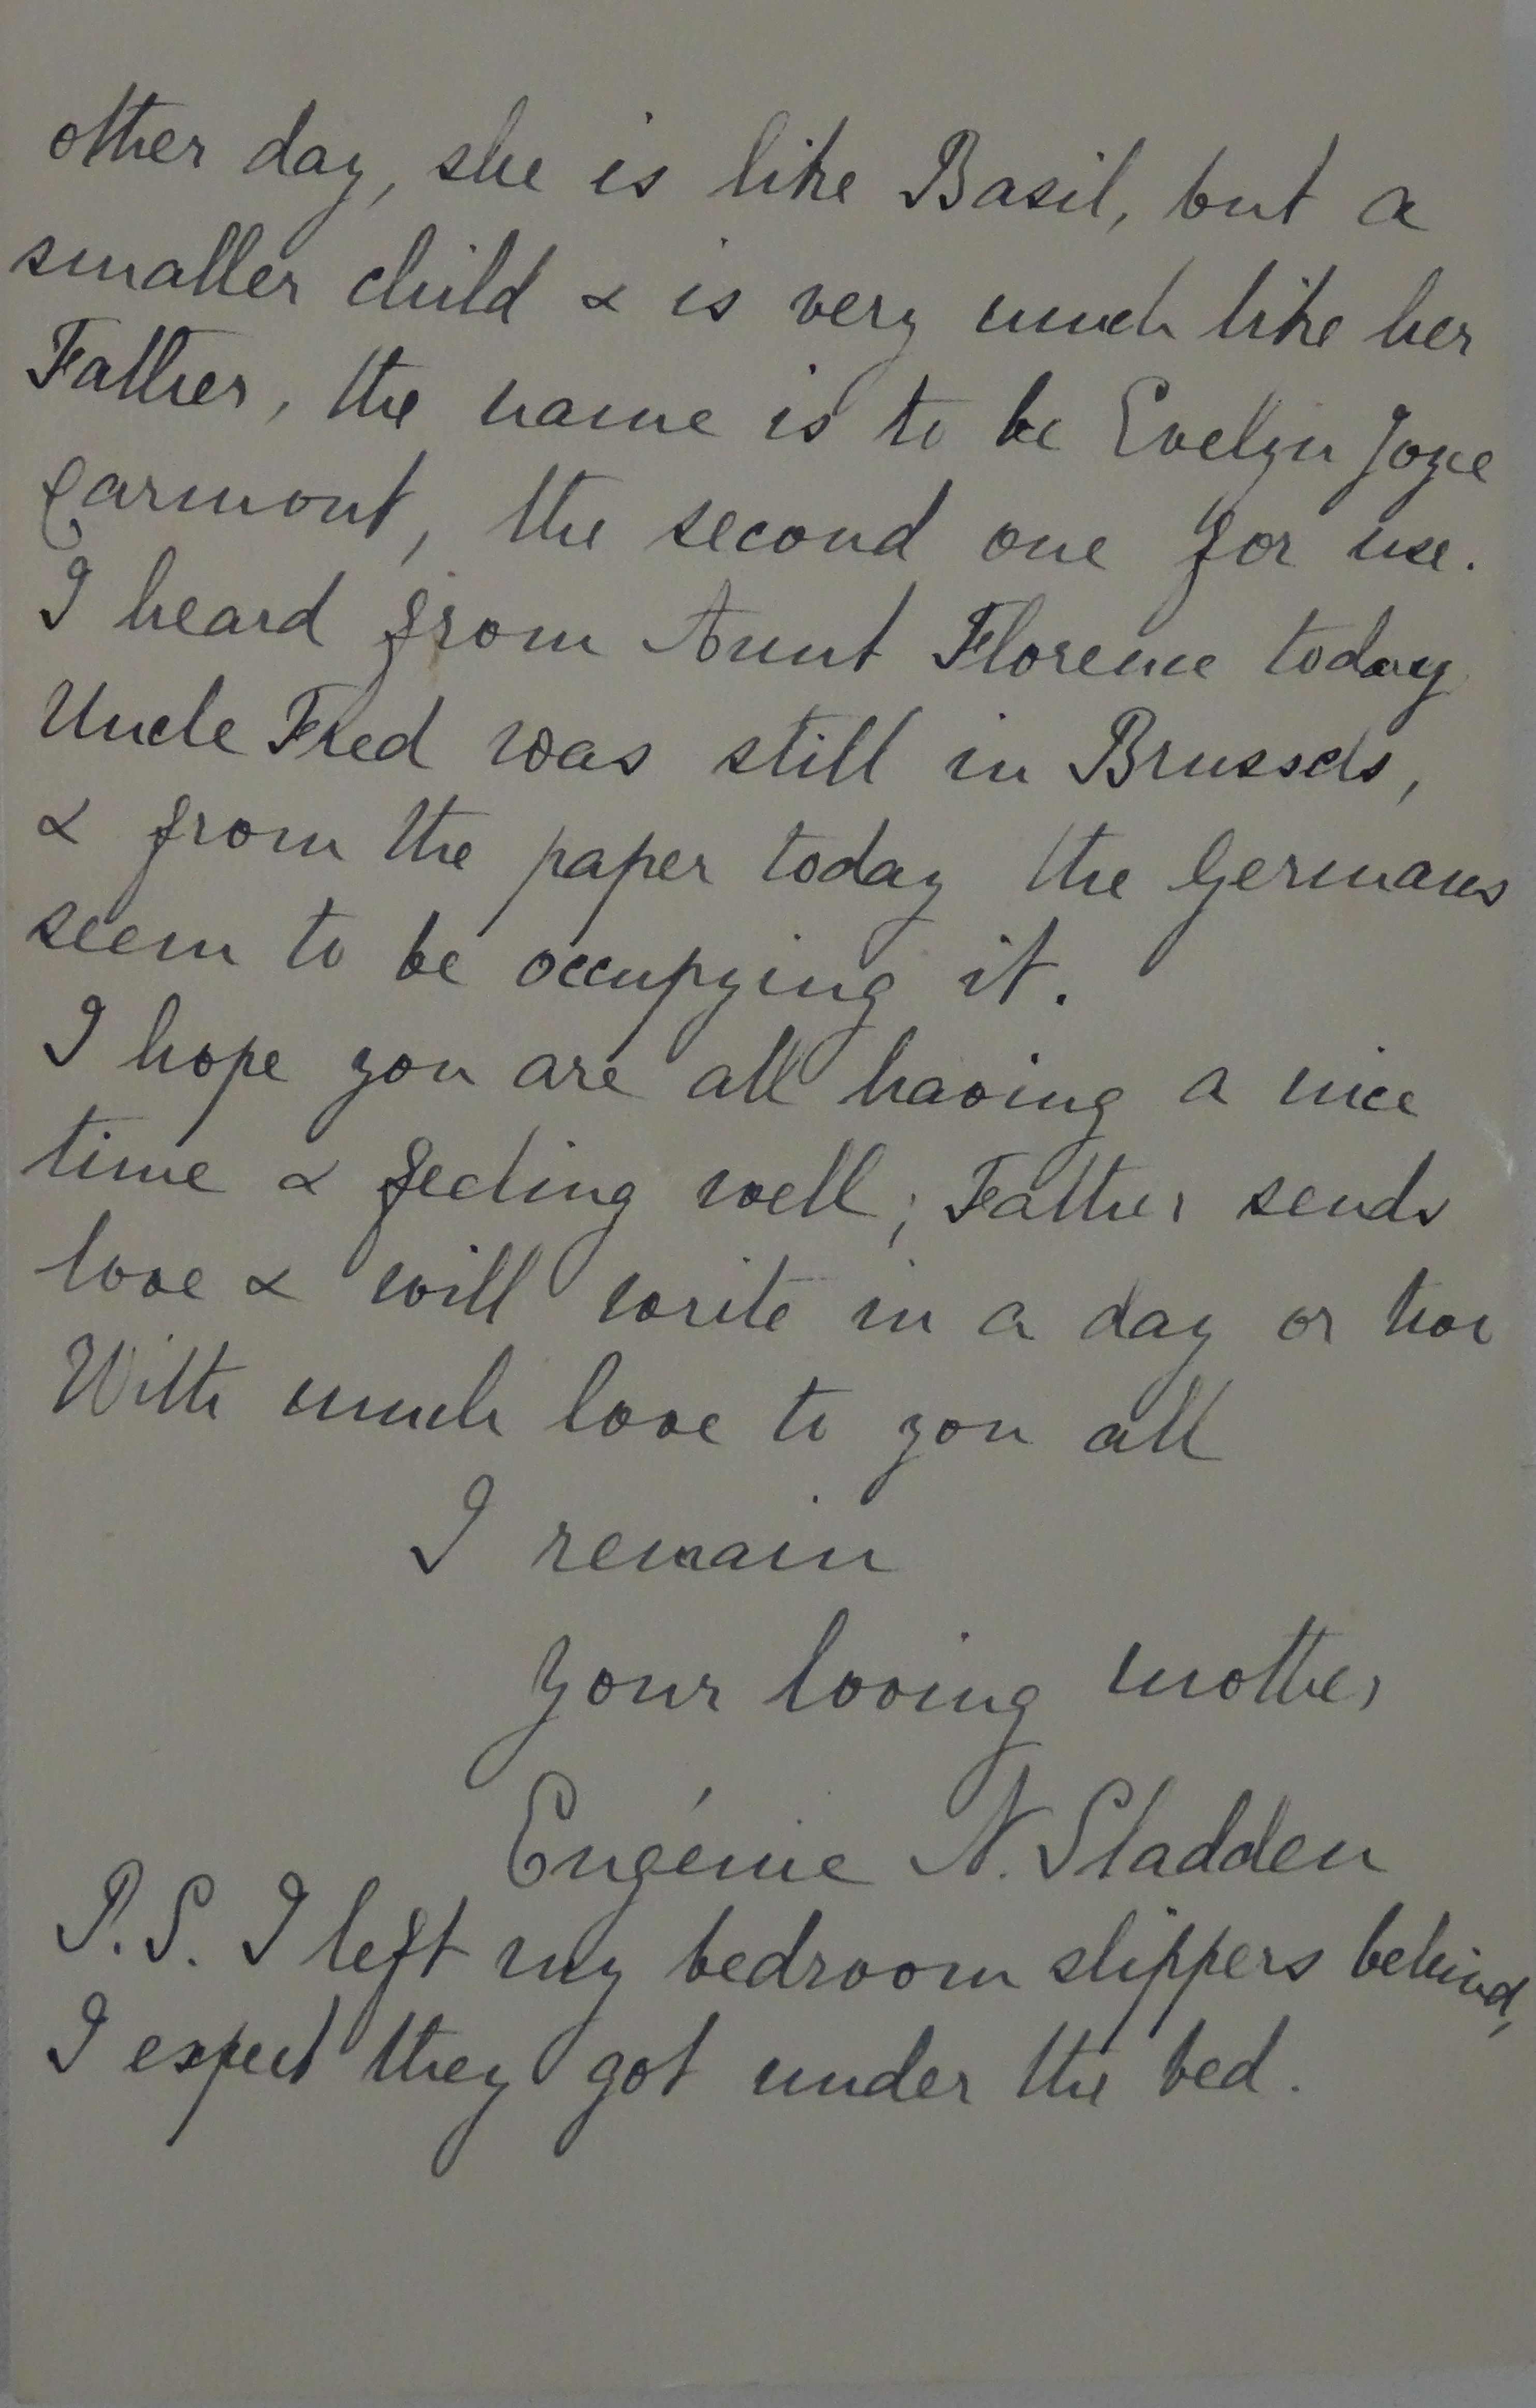 other day, she is like Basil, but a
smaller child & is very much like her
Father, the name is to be Evelyn Joyce
Earmont, the second one for use.
I heard from Aunt Florence today
Uncle Fred was still in Brussels,
& from the paper today the Germans
seem to be occupying it.
I hope you are all having a nice
time & feeling well; Father sends
love & will write in a day or two
With much love to you all
I remain
your loving mother
Eugénie N. Sladden
P.S. I left my bedroom slippers behind,
I expect they got under the bed.